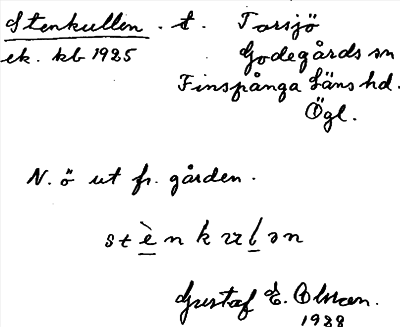 Stenkullen . t. Torsjö
ek. kb 1925 Godegårds sn
Finspånga Läns hd.
Ögl.
N. ö ut fr. gården.
stènkullən
Gustaf E. Olsson.
1928